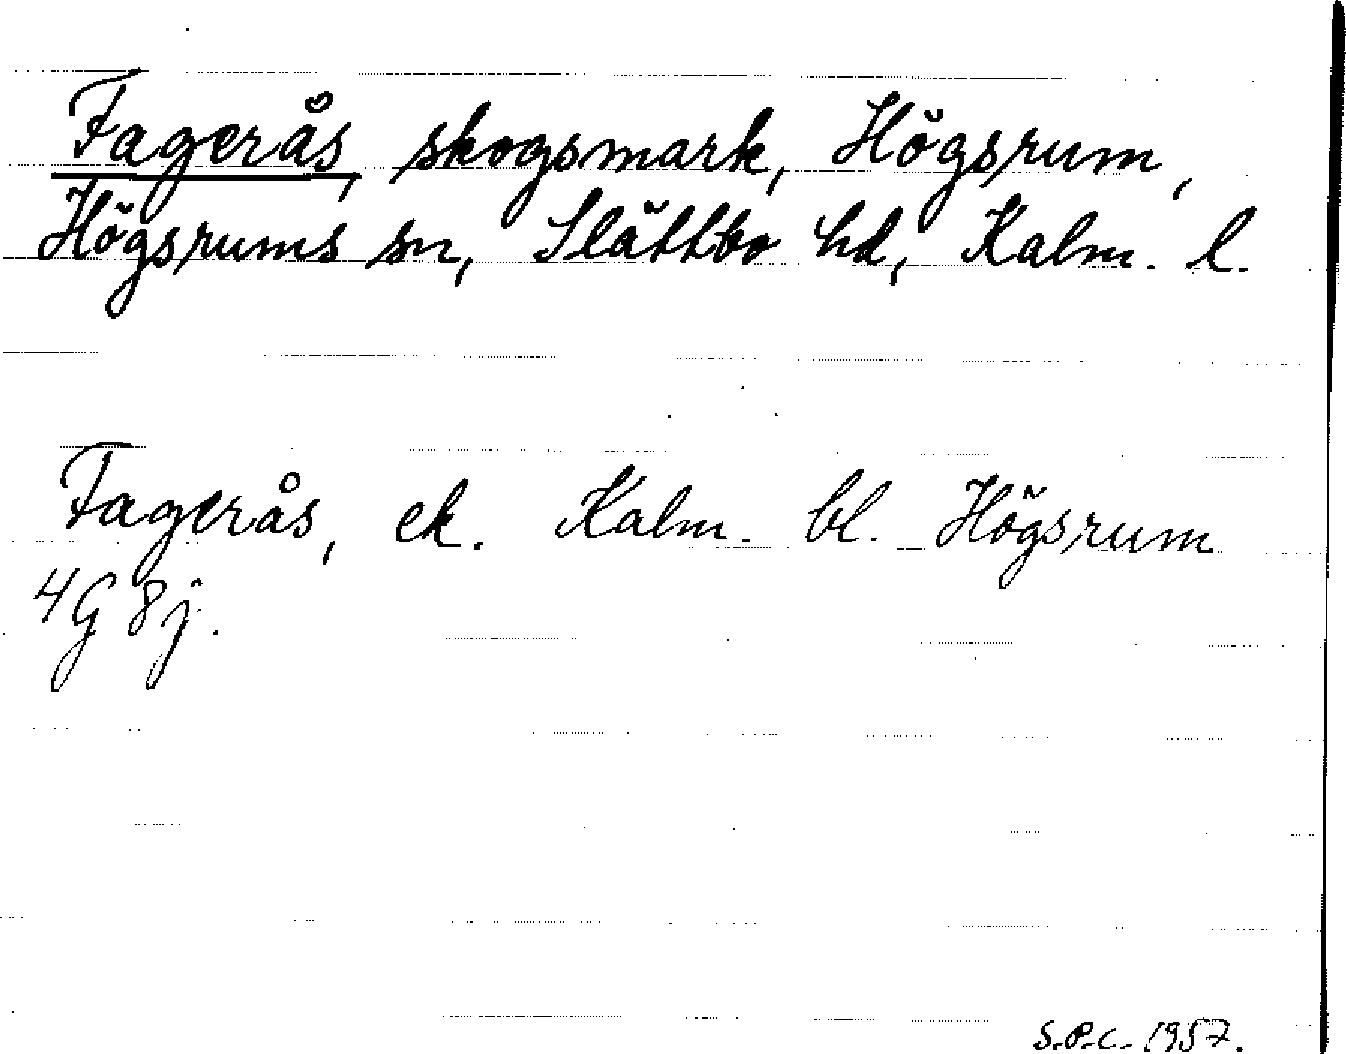 Fagerås, skogsmark, Högsrum,
Högsrums sn, Slättbo hd, Kalm. l.
Fagerås, ek. Kalm. bl. Högsrum
4G 8j.
S.P.C. 1957.